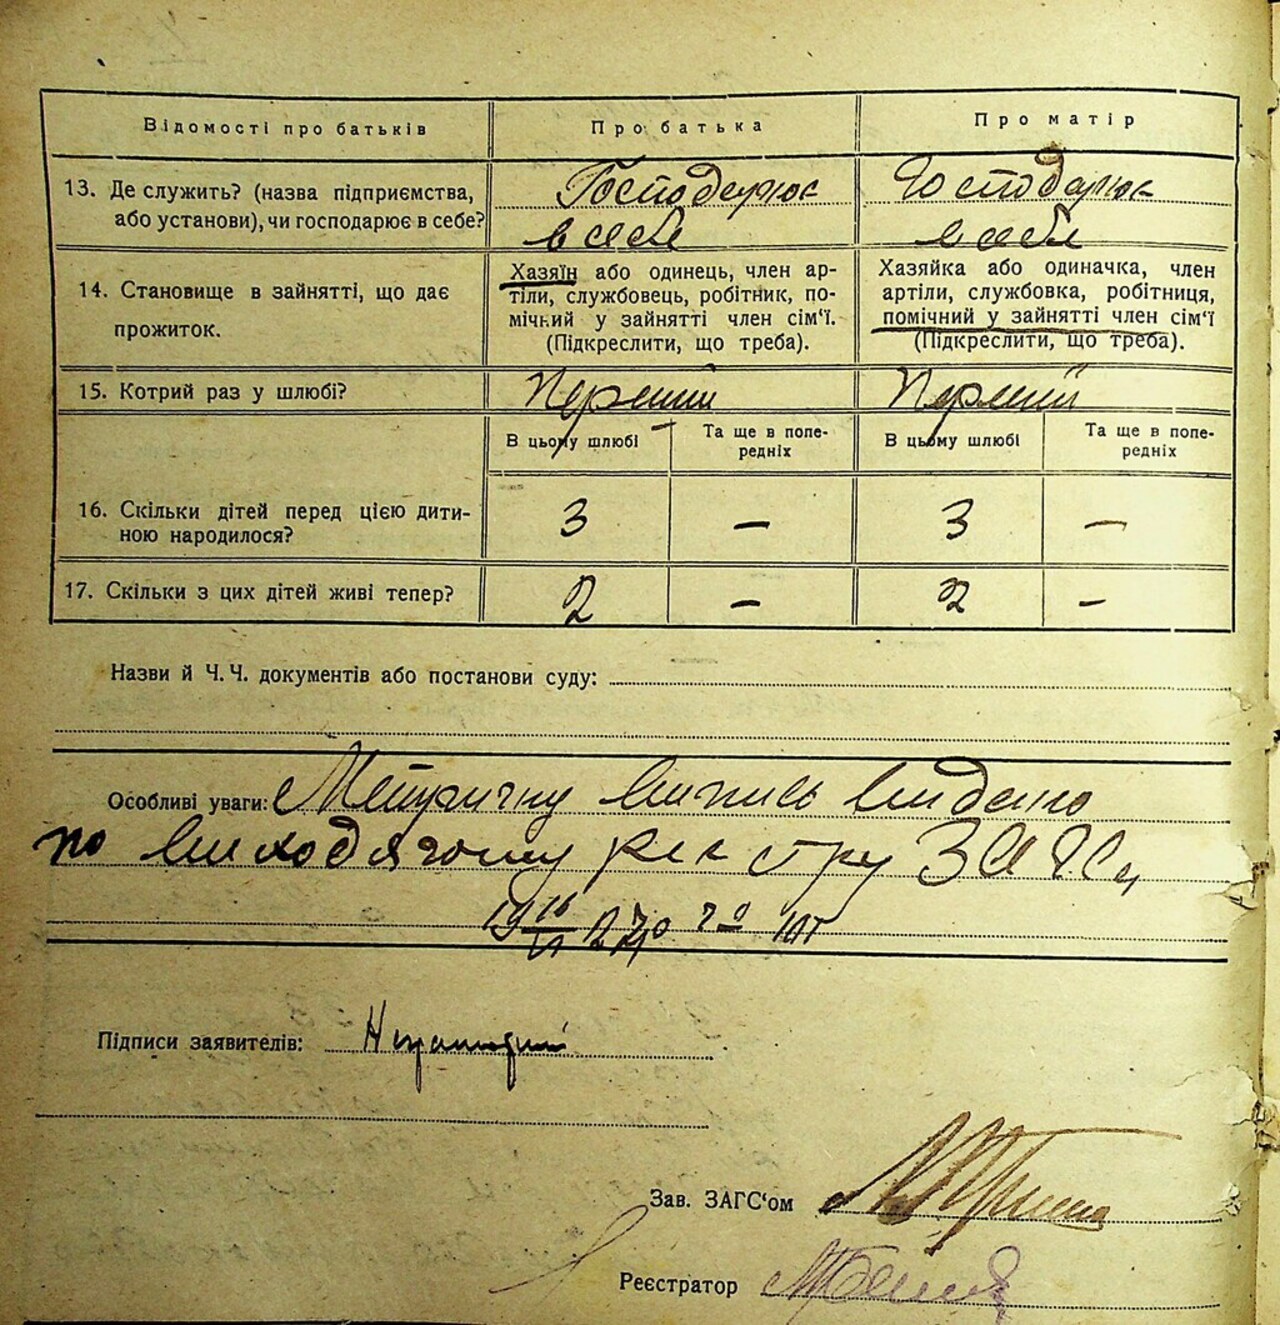 Відомості про батьків Про батька Про матір
13. Де служить? (назва підприємства, Господарює Господарює
або установи), чи господарює в себе? в себе в себе
14. Становище в зайнятті, що дає
прожиток.
Хазяїн або одинець, член ар-
тіли, службовець, робітник, по-
мічний у зайнятті член сім'ї.
(Підкреслити, що треба).
Хазяйка або одиначка, член
артіли, службовка, робітниця,
помічний у зайнятті член сім'ї
(Підкреслити, що треба).
15. Котрий раз у шлюбі? Перший Перший
В цьому шлюбі Та ще в попе-
редніх
В цьому шлюбі Та ще в попе-
редніх
16. Скільки дітей перед цією дити-
ною народилося? 3 – 3 –
17. Скільки з цих дітей живі тепер? 2 – 2 –
Назви й Ч. Ч. документів або постанови суду:
Особливі уваги: Метричну випись видано
по виходячому реєстру ЗАГСа
Підписи заявителів:
Зав. ЗАГС'ом
Реєстратор